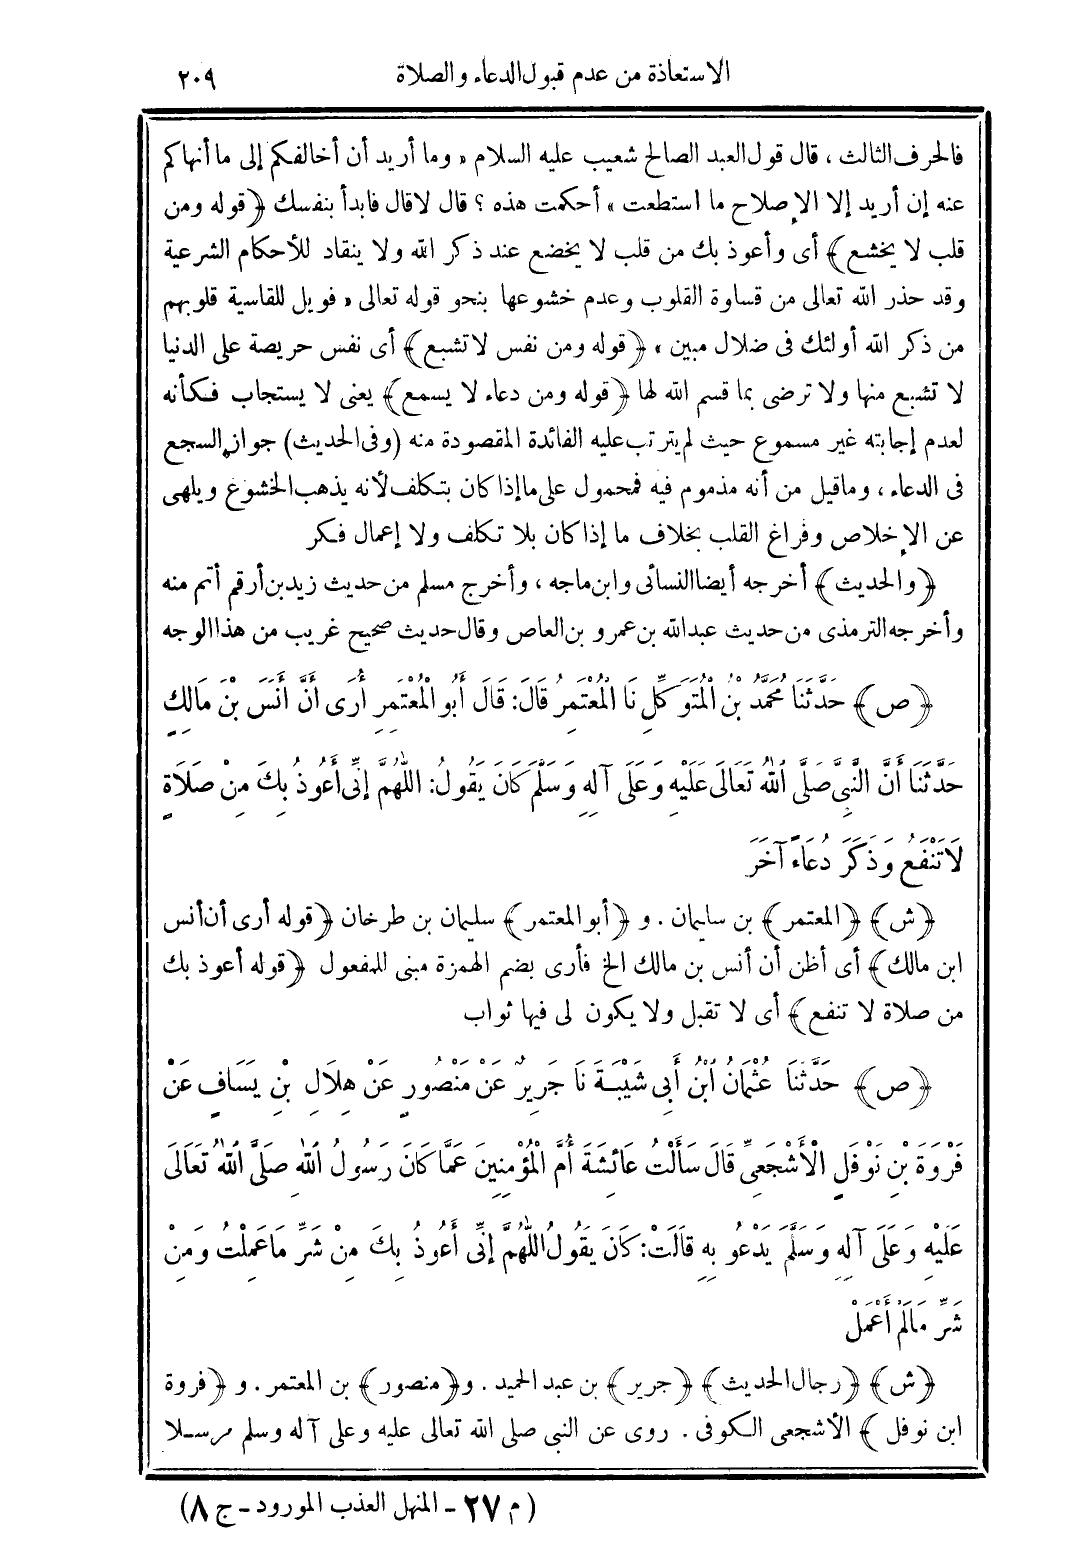 الاستعاذة من عدم قبول الدعاء والصلاة ٢٠٩
فالحرف الثالث ، قال قول العبد الصالح شعيب عليه السلام « وما أريد أن أخالفكم إلى ما أنهاكم
عنه إن أريد إلا الإصلاح ما استطعت » أحكمت هذه ؟ قال لا قال فابدأ بنفسك ﴿ قوله ومن
قلب لا يخشع ﴾ أى وأعوذ بك من قلب لا يخضع عند ذكر الله ولا ينقاد للأحكام الشرعية
وقد حذر الله تعالى من قساوة القلوب وعدم خشوعها بنحو قوله تعالى « فويل للقاسية قلوبهم
من ذكر الله أولئك فى ضلال مبين » ﴿ قوله ومن نفس لا تشبع ﴾ أى نفس حريصة على الدنيا
لا تشبع منها ولا ترضى بما قسم الله لها ﴿ قوله ومن دعاء لا يسمع ﴾ يعنى لا يستجاب فكأنه
لعدم إجابته غير مسموع حيث لم يترتب عليه الفائدة المقصودة منه (وفى الحديث) جواز السجع
فى الدعاء ، وما قيل من أنه مذموم فيه فمحمول على ما إذا كان بتكلف لأنه يذهب الخشوع ويلهى
عن الإخلاص وفراغ القلب بخلاف ما إذا كان بلا تكلف ولا إعمال فكر
﴿ والحديث ﴾ أخرجه أيضا النسائى وابن ماجه ، وأخرج مسلم من حديث زيد بن أرقم أتم منه
وأخرجه الترمذى من حديث عبد الله بن عمرو بن العاص وقال حديث صحيح غريب من هذا الوجه
﴿ ص ﴾ حَدَّثَنَا مُحَمَّدُ بْنُ الْمُتَوَكِّلِ نَا الْمُعْتَمِرُ قَالَ: قَالَ أَبُو الْمُعْتَمِرِ أُرَى أَنَّ أَنَسَ بْنَ مَالِكٍ
حَدَّثَنَا أَنَّ النَّبِيَّ صَلَّى اللهُ تَعَالَى عَلَيْهِ وَعَلَى آلِهِ وَسَلَّمَ كَانَ يَقُولُ: اللّٰهُمَّ إِنِّى أَعُوذُ بِكَ مِنْ صَلَاةٍ
لَا تَنْفَعُ وَذَكَرَ دُعَاءً آخَرَ
﴿ ش ﴾ ﴿ المعتمر ﴾ بن سليمان . و ﴿ أبو المعتمر ﴾ سليمان بن طرخان ﴿ قوله أرى أن أنس
ابن مالك ﴾ أى أظن أن أنس بن مالك الخ فأرى بضم الهمزة مبنى للمفعول ﴿ قوله أعوذ بك
من صلاة لا تنفع ﴾ أى لا تقبل ولا يكون لى فيها ثواب
﴿ ص ﴾ حَدَّثَنَا عُثْمَانُ ابْنُ أَبِى شَيْبَةَ نَا جَرِيرٌ عَنْ مَنْصُورٍ عَنْ هِلَالِ بْنِ يَسَافٍ عَنْ
فَرْوَةَ بْنِ نَوْفَلٍ الْأَشْجَعِىِّ قَالَ سَأَلْتُ عَائِشَةَ أُمَّ الْمُؤْمِنِينَ عَمَّا كَانَ رَسُولُ اللهِ صَلَّى اللهُ تَعَالَى
عَلَيْهِ وَعَلَى آلِهِ وَسَلَّمَ يَدْعُو بِهِ قَالَتْ: كَانَ يَقُولُ اللّٰهُمَّ إِنِّى أَعُوذُ بِكَ مِنْ شَرِّ مَا عَمِلْتُ وَمِنْ
شَرِّ مَا لَمْ أَعْمَلْ
﴿ ش ﴾ ﴿ رجال الحديث ﴾ ﴿ جرير ﴾ بن عبد الحميد . و﴿ منصور ﴾ بن المعتمر . و ﴿ فروة
ابن نوفل ﴾ الأشجعى الكوفى . روى عن النبى صلى الله تعالى عليه وعلى آله وسلم مرسلا
(م ٢٧ - المنهل العذب المورود - ج ٨)